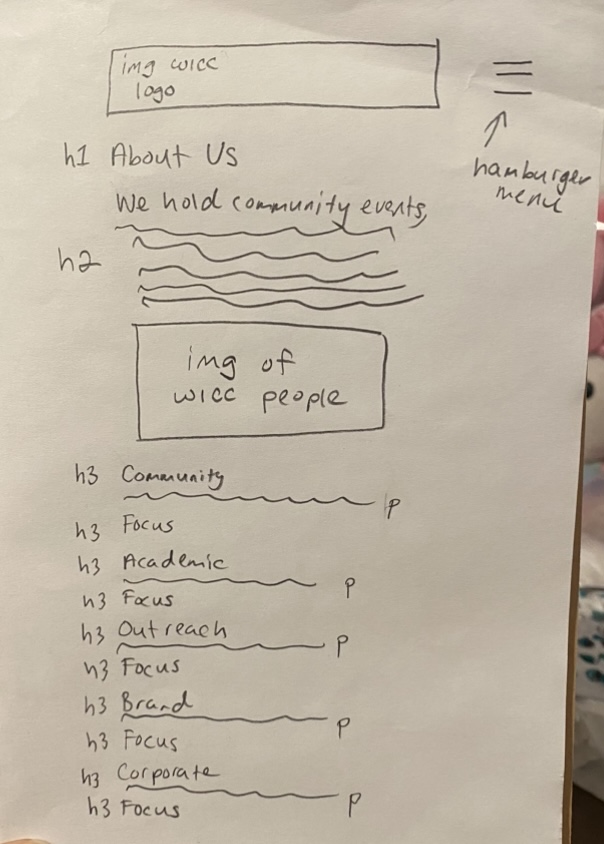 img wicc
logo
hamburger
menu
h1 About Us
We hold community events,
h2
img of
wicc people
h3 Community
p
h3 Focus
h3 Academic
p
h3 Focus
h3 Outreach
p
h3 Focus
h3 Brand
p
h3 Focus
h3 Corporate
p
h3 Focus